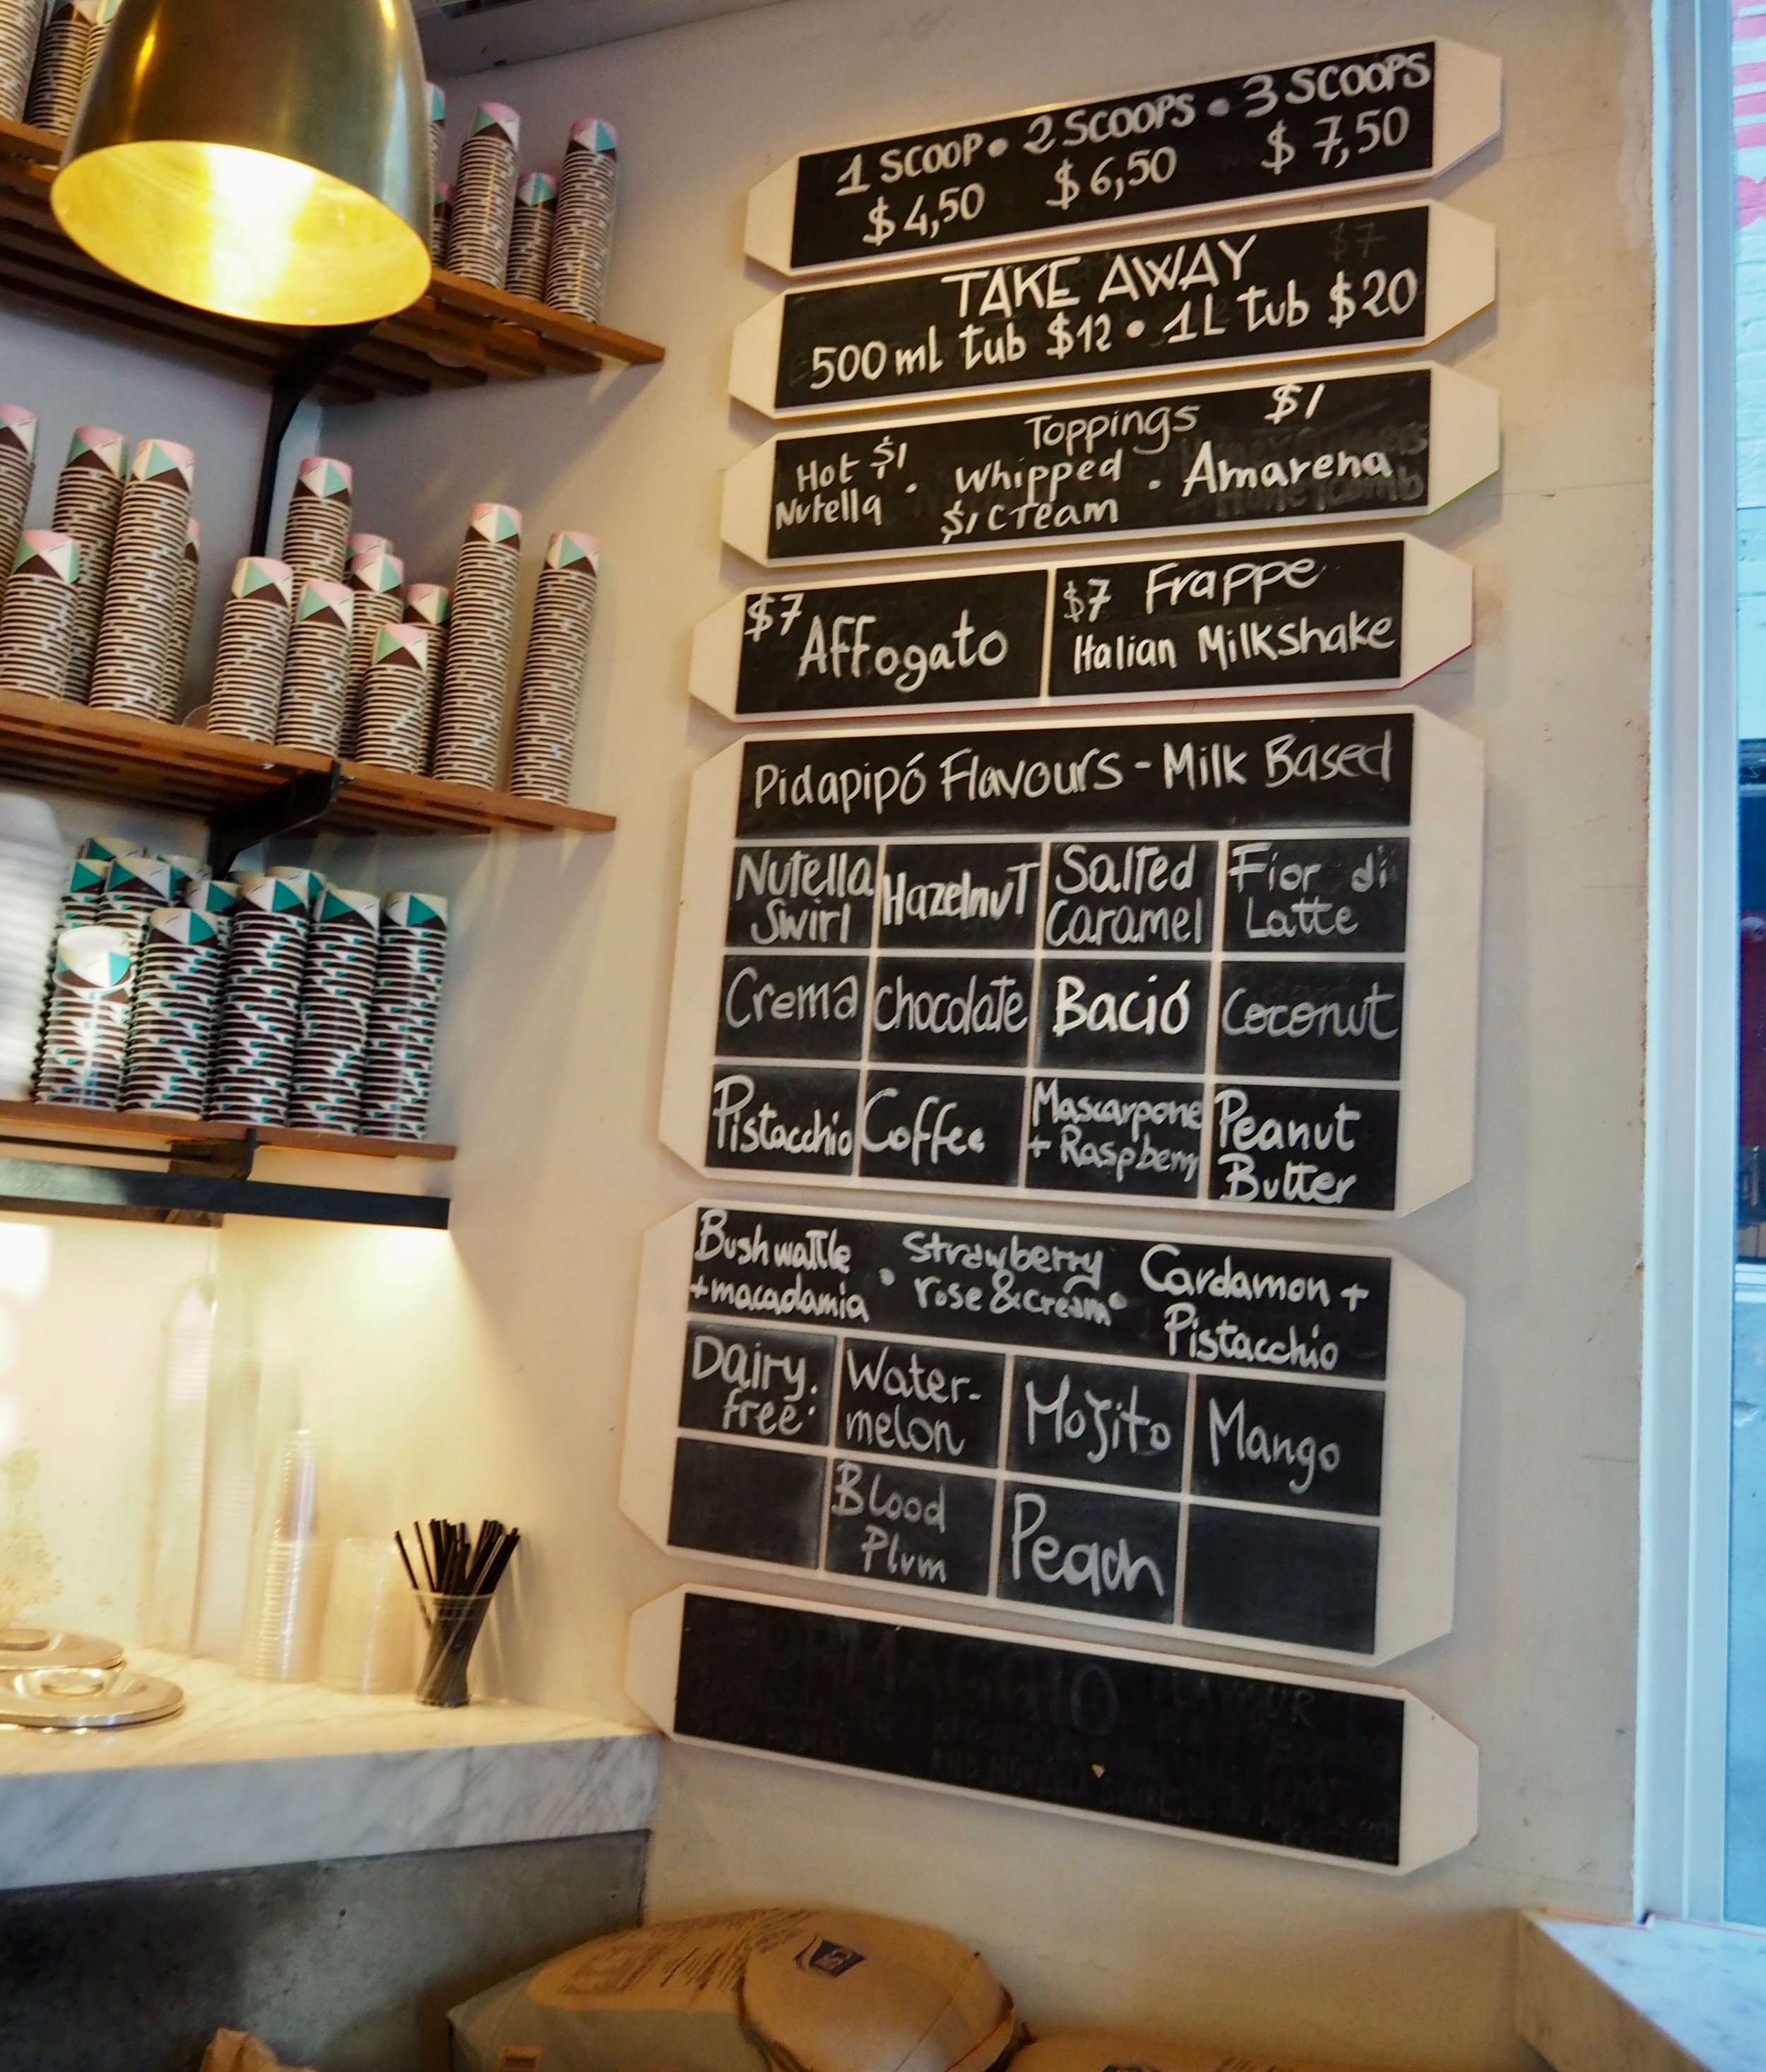 1 SCOOP • 2 SCOOPS • 3 SCOOPS
$4,50 $6,50 $7,50
TAKE AWAY
500 ml tub $12 • 1L tub $20
Toppings $1
Hot $1 Nutella • Whipped $1 cream • Amarena
$7 Affogato
$7 Frappe
Italian Milkshake
Pidapipó Flavours - Milk Based
Nutella Swirl
Hazelnut
Salted Caramel
Fior di Latte
Crema
chocolate
Bació
Coconut
Pistacchio
Coffee
Mascarpone + Raspberry
Peanut Butter
Bush wattle + macadamia • Strawberry rose & cream • Cardamon + Pistacchio
Dairy. free.
Water-
melon
Mojito
Mango
Blood Plum
Peach